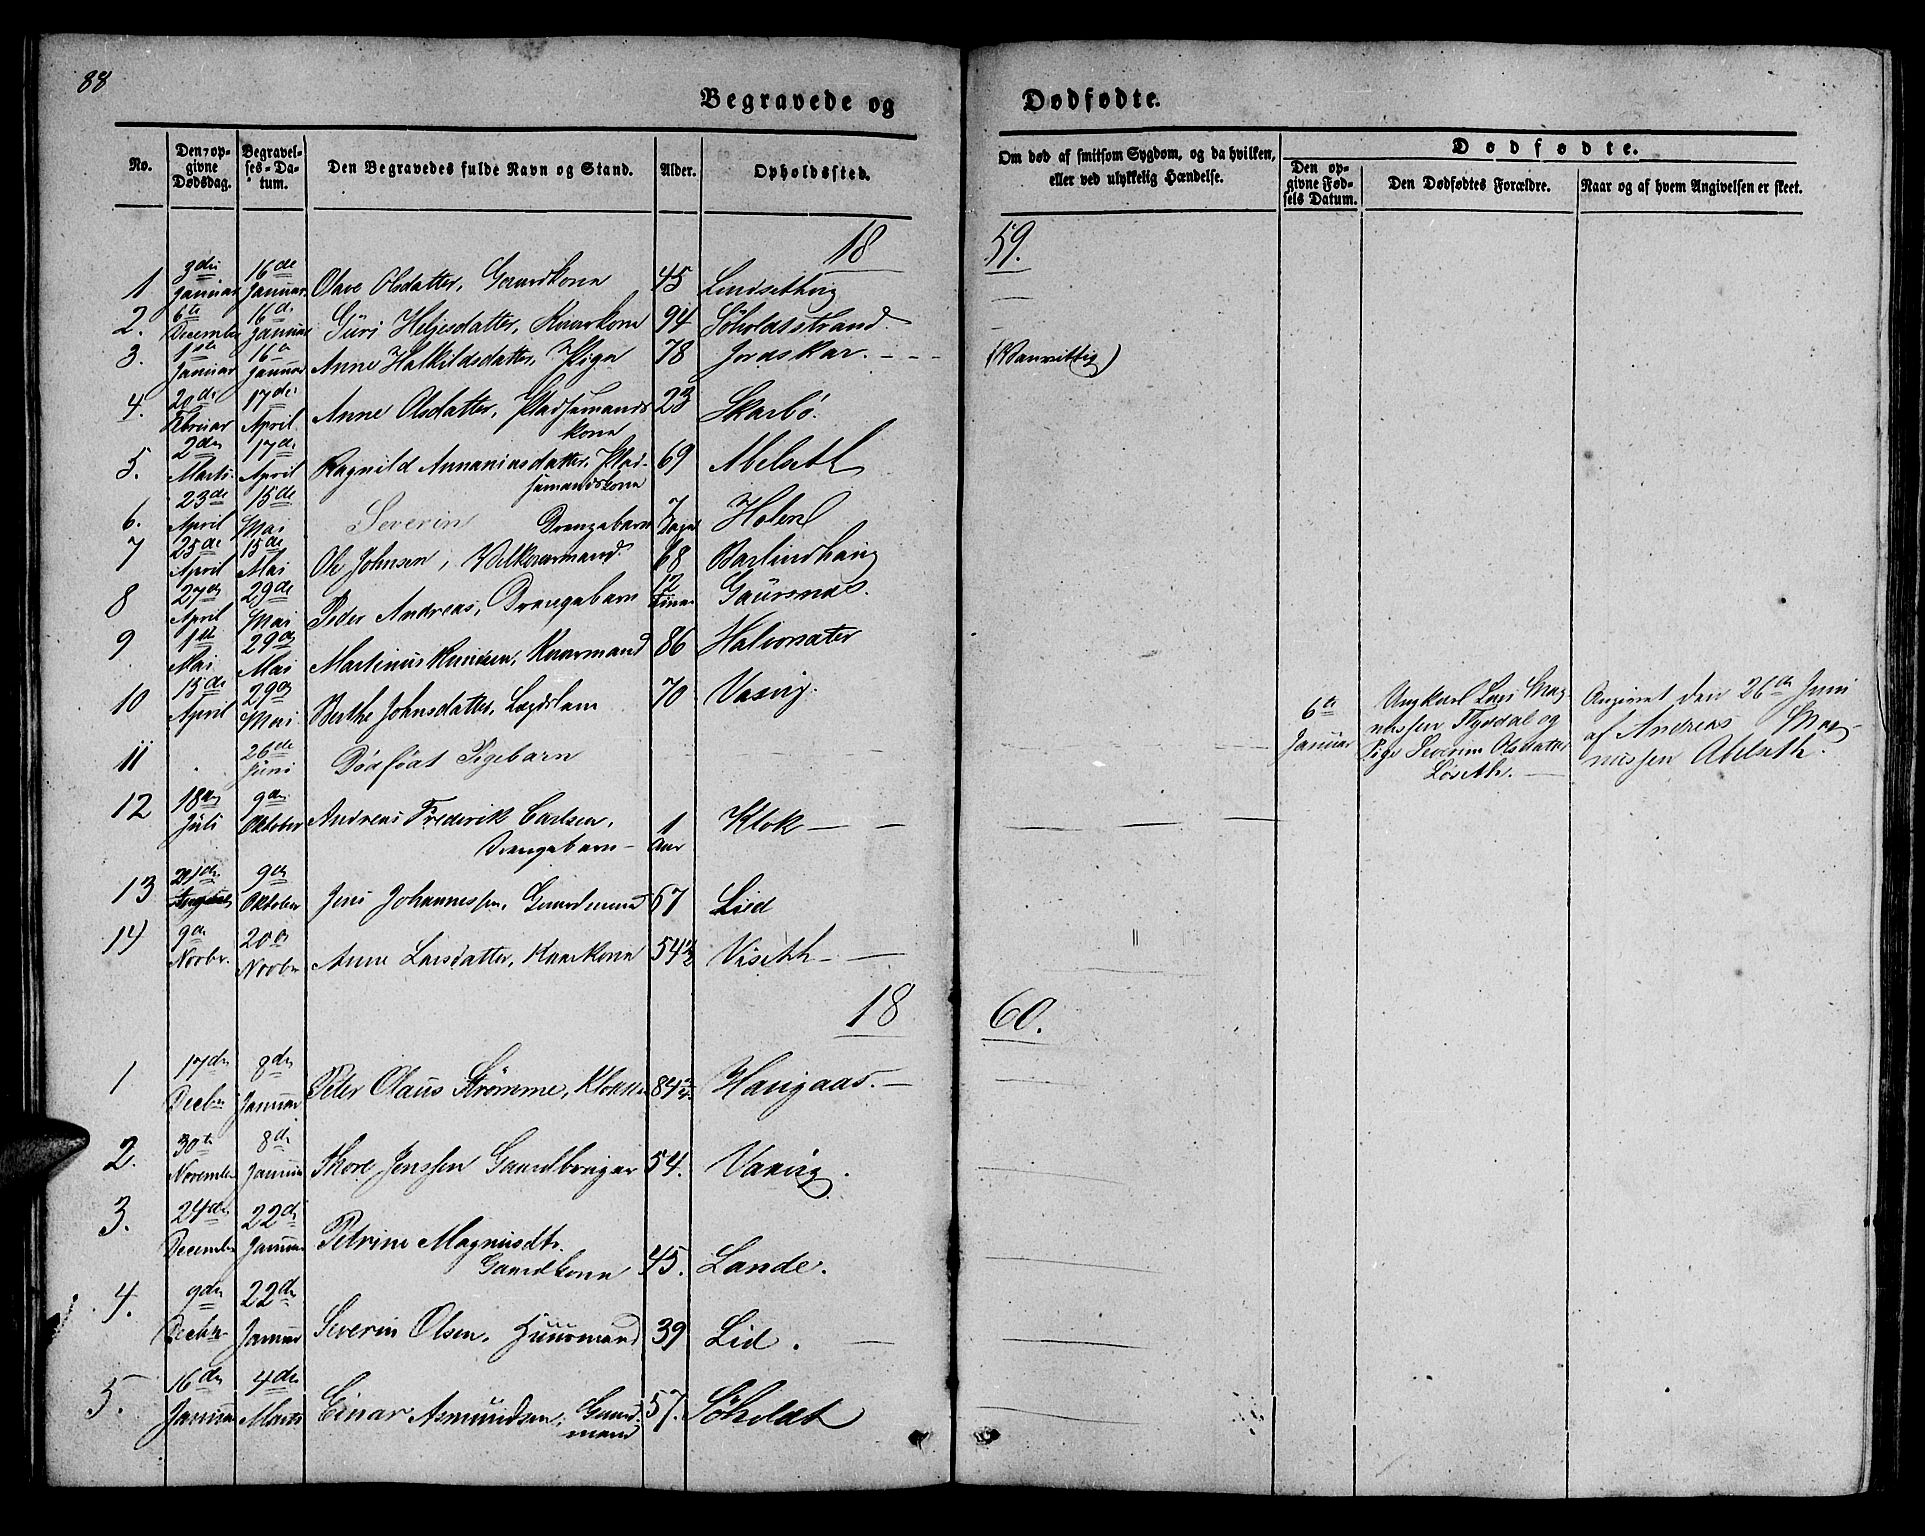 88
Begravede og Dødfødte.
No. Den opgivne Dødsdag. Begravelses-Datum. Den Begravedes fulde Navn og Stand. Alder. Opholdssted. Om død af smitsom Sygdom, og da hvilken, eller ved ulykkelig Hændelse. Dødfødte. Den opgivne Fødsels Datum. Den Dødfødtes Forældre. Naar og af hvem Angivelsen er skeet.
18 59.
1 3die Januar 16de Januar Olave Olsdatter, Gaardkone 45
2. 6te December 16de Januar Guri Heljesdatter, Kaarkone 94 Søholdtstrand.
3. 1ste Januar 16de Januar Anne Halkildsdatter, Pige 78 Jordskar. (Vanvittig)
4. 20de Februar 17de April Anne Olsdatter, Pladsemandskone 23 Skarbø.
5. 2den Marts 17de April Ragnild Annaniasdatter, Pladsemandskone 69 Abelseth
6. 23de April 15de Mai Severin Drengebarn 7 Dage Holen
7 25de April 15de Mai Ole Johnsen, Vilkaarmand 68 Barlindhaug
8 27de April 29de Mai Peder Andreas, Drengebarn 12 Timer Gausnæs.
9 1ste Mai 29de Mai Martinus Knudsen, Kaarmand 86 Halvorsæter
10 15de April 29de Mai Berthe Johnsdatter, Lægdslem 70 Vasvig.
11 26de Juni Dødfødt Pigebarn 6te Januar Ungkarl Lars Magnussen Flydal og Pige Severine Olsdatter Løseth. Angivet den 26de Juni af Andreas Magnussen Abelseth.
12 18de Juli 9de Oktober Andreas Frederik Carlsen, Drengebarn 1 Aar Klok
13 21de August 9de Oktober Jens Johannessen, Gaardmand 67 Lied
14 9de Novbr. 20de Novbr Anne Larsdatter, Kaarkone 54 1/2 Viseth
18 60.
1 17de Decbr 8de Januar Peter Olaus Strømme, Klokker 84 Haugaas.
2. 30te November 8de Januar Thore Jenssen Gaardbruger 54. Vasvig.
3. 24de December 22de Januar Petrine Magnusdtr. Gaardkone 45. Lande.
4. 9de Decbr 22de Januar Severin Olsen, Huusmand 39 Lid.
5. 16de Januar 4de Marts Einar Asmundsen, Gaardmand 57. Søholdt